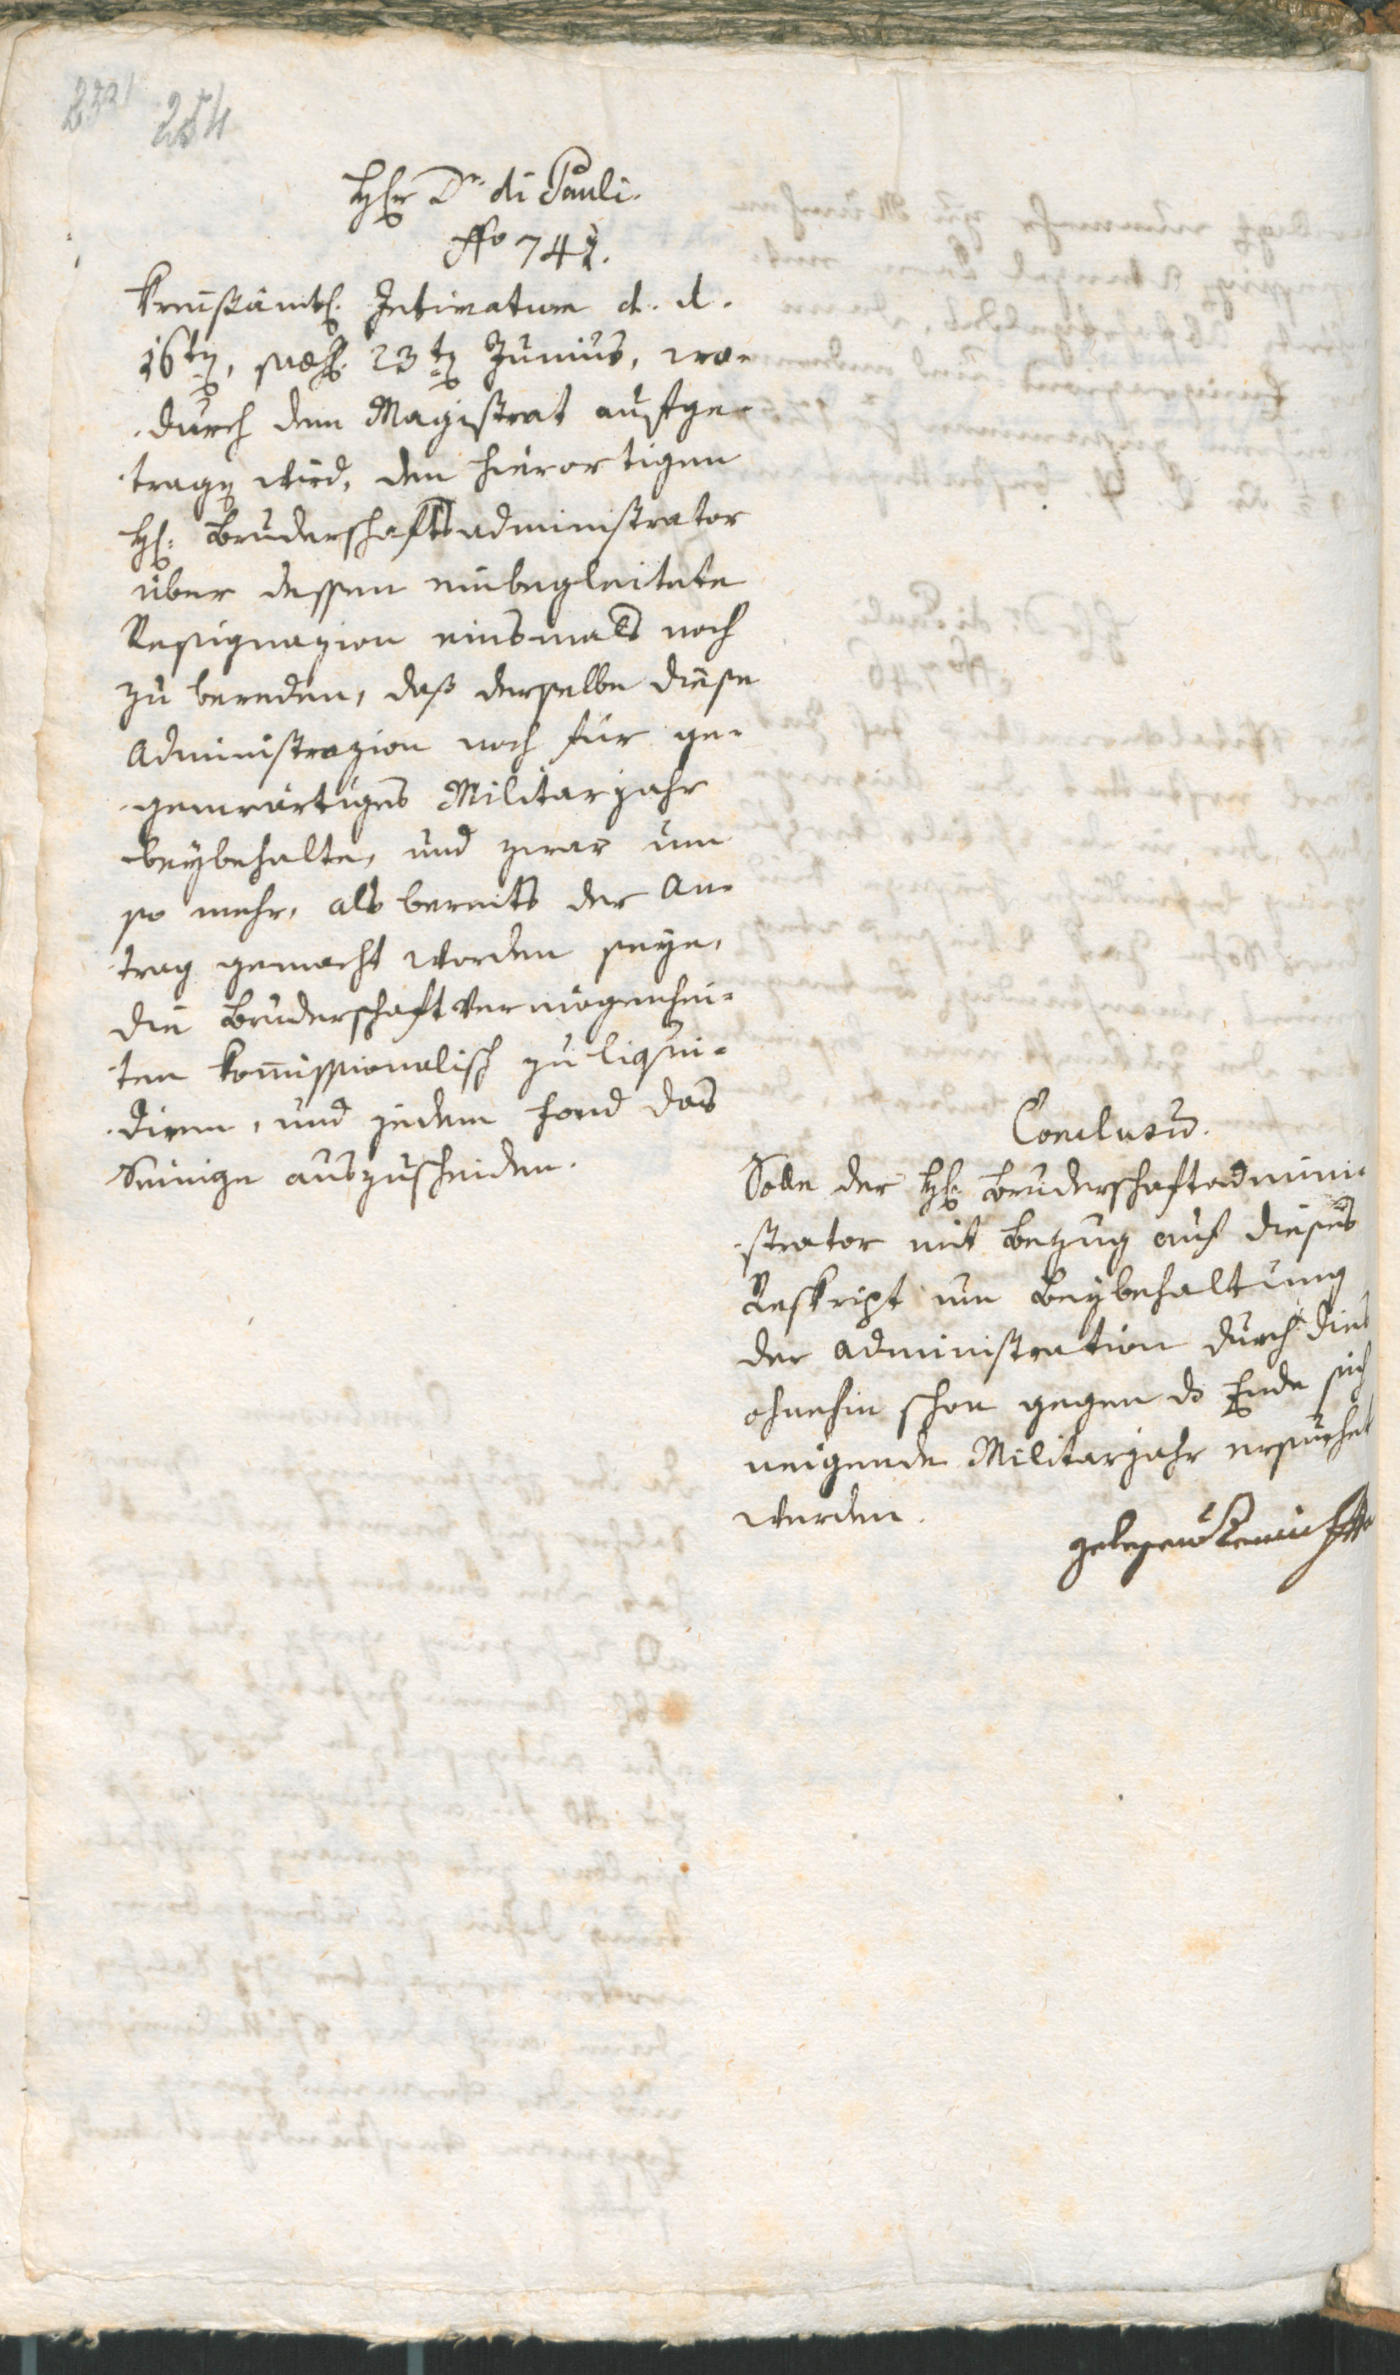 254
Herr Dr. di Pauli.
No 741.
Kreisämtl. Intimatum d. d.
16ten, praes. 23ten Junius, wo-
durch dem Magistrat aufge-
tragen wird, den hierortigen
H: Bruderschaftsadministrator
über dessen einbegleitete
Resignazion einsmals noch
zu bereden, daß derselbe diese
Administrazion noch für ge-
genwärtiges Militarjahr
beybehalte, und zwar um
so mehr, als bereits der An-
trag gemacht worden seye,
die Bruderschaft Vermögenhei-
ten kommissionalisch zu liqui-
diren, und jedem Fond das
Seinige auszuscheiden.
Conclusum.
Solle der H: Bruderschaftadmini-
strator mit Bezug auf dieses
Reskript um Beybehaltung
der Administration durch dies
ohnehin schon gegen das Ende sich
neigende Militarjahr ersuchet
werden.
gelesen